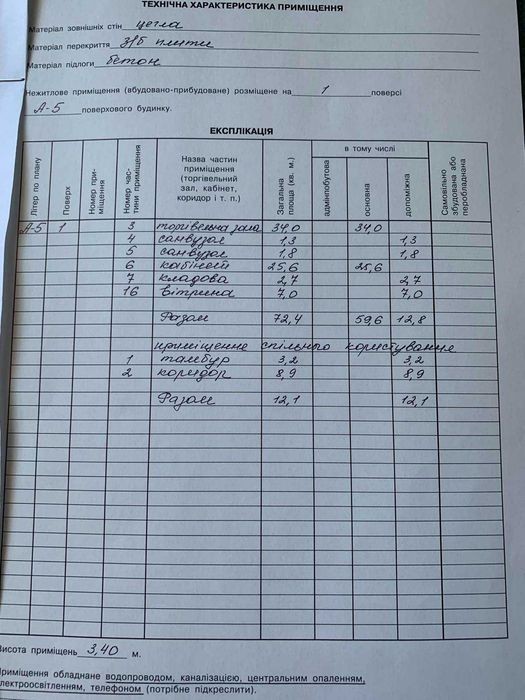 ТЕХНІЧНА ХАРАКТЕРИСТИКА ПРИМІЩЕННЯ
Матеріал зовнішніх стін цегла
Матеріал перекриття з/б плити
Матеріал підлоги бетон
Нежитлове приміщення (вбудовано-прибудоване) розміщене на 1 поверсі
А-5 поверхового будинку.
ЕКСПЛІКАЦІЯ
Літер по плану
Поверх
Номер при-міщення
Номер час-тини приміщення
Назва частин приміщення (торгівельний зал, кабінет, коридор і т. п.)
Загальна площа (кв. м.)
в тому числі
адмінпобутова
основна
допоміжна
Самовільно збудована або переобладнана
А-5 1 3 торгівельна зала 34,0 34,0
4 санвузол 1,3 1,3
5 санвузол 1,8 1,8
6 кабінет 25,6 25,6
7 кладова 2,7 2,7
16 вітрина 7,0 7,0
Разом 72,4 59,6 12,8
приміщення спільного користування
1 тамбур 3,2 3,2
2 коридор 8,9 8,9
Разом 12,1 12,1
Висота приміщень 3,40 м.
Приміщення обладнане водопроводом, каналізацією, центральним опаленням,
електроосвітленням, телефоном (потрібне підкреслити).